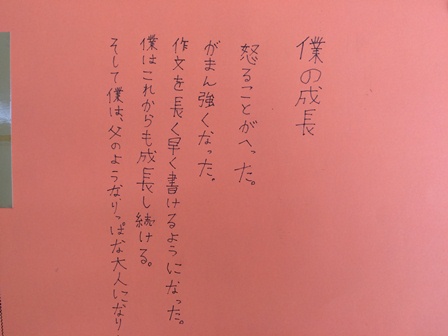 僕の成長
怒ることがへった。
がまん強くなった。
作文を長く早く書けるようになった。
僕はこれからも成長し続ける。
そして僕は、父のようなりっぱな大人になり